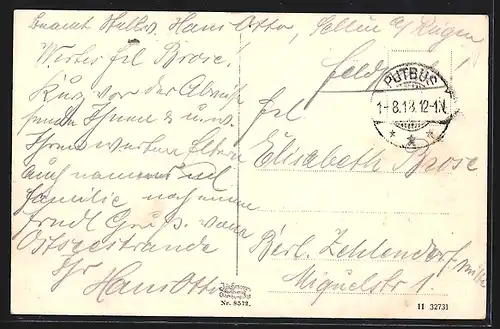 Hans Otto, Sellin a/Rügen
Wertes Frl. Brose!
Kurz vor der Abreise
senden Ihnen u.
Ihren werten Eltern
auch namens
Familie noch einen
frndl. Gruß vom
Ostseestrande
Ihr Hans Otto
Feldp.!
PUTBUS
1-8.18.12-1N.
* * *
Frl.
Elisabeth Brose
Berl. Zehlendorf, mitte
Miquelstr. 1.
Nr. 8512.
11 32731